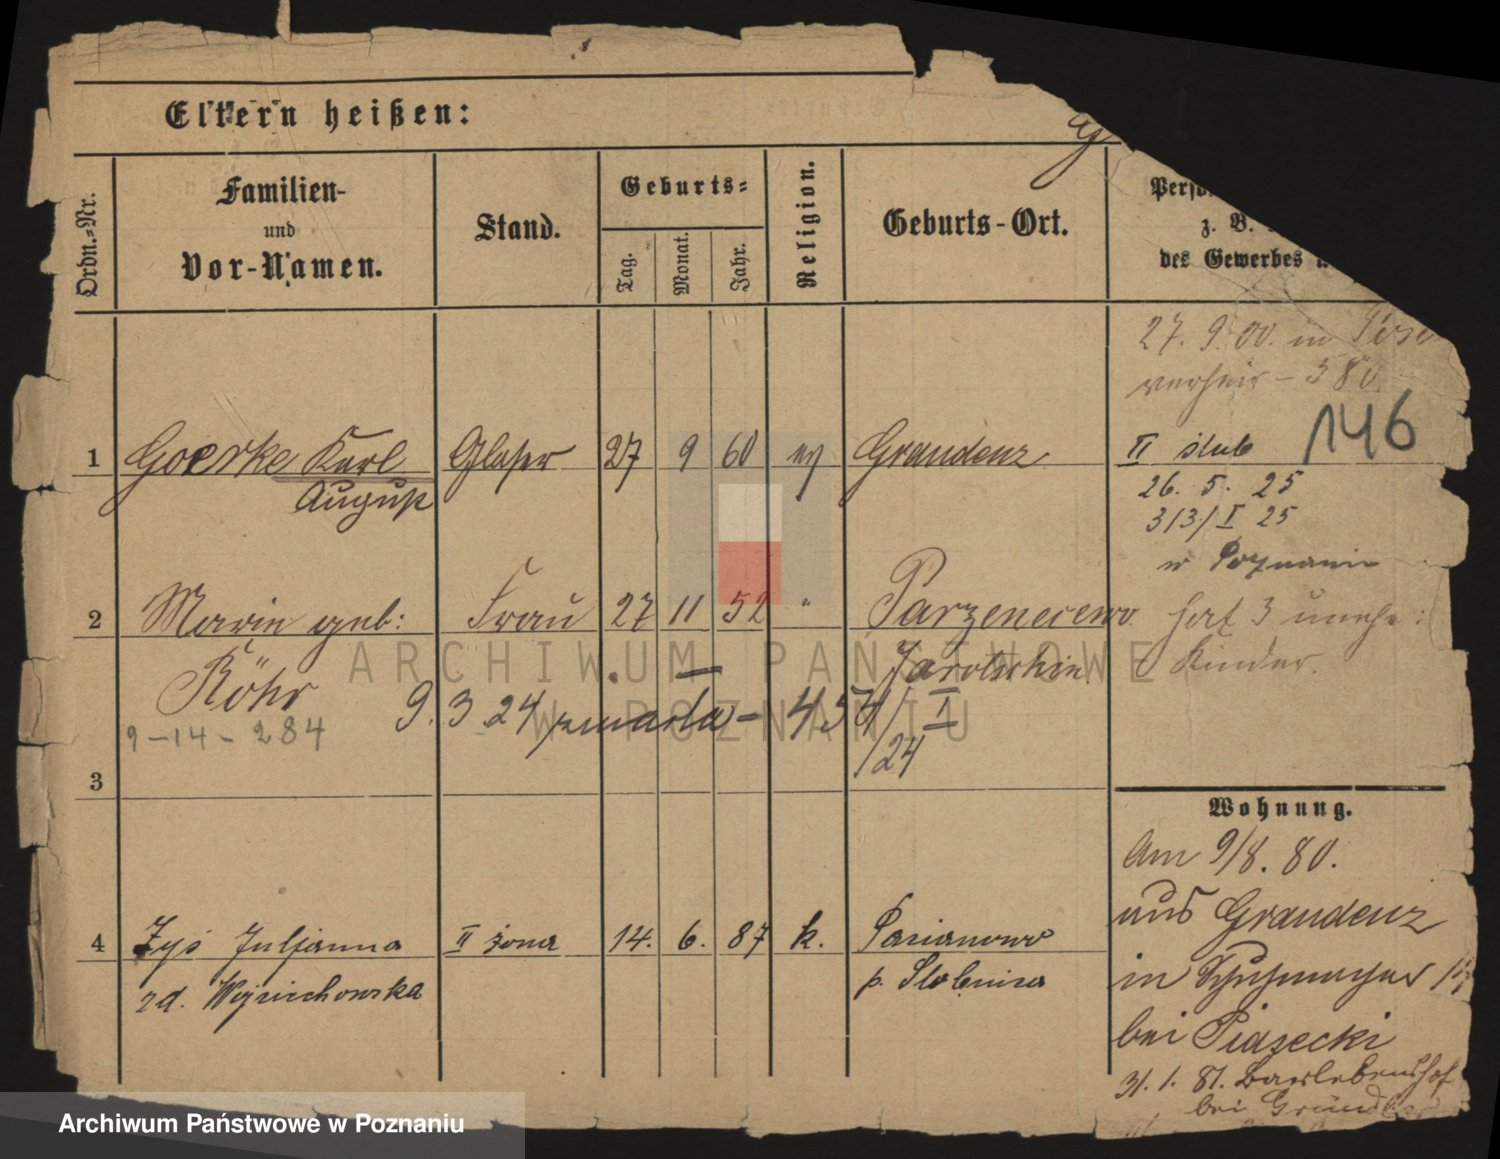 Eltern heißen:
Ordn.-Nr.
Familien-
und
Vor-Namen.
Stand.
Geburts-
Tag.
Monat.
Jahr.
Religion.
Geburts-Ort.
z. B.
des Gewerbes
27. 9. 00. in
verheir - 580.
1 Goerke Karl Glaser 27 9 60 ev Graudenz
August
II ślub 146
26. 5. 25
313/I 25
w Poznaniu
2 Marie geb: Frau 27 11 52 " Parzenczewo
Röhr Jarotschin
hat 3 unehe:
Kinder.
9. 3 24 zmarła - 4574/I
/24
9-14-284
3
4 Zyś Juljanna II żona 14. 6. 87 k.
zd. Wojciechowska
Wohnung.
Am 9/8. 80.
aus Graudenz
in
bei Piasecki
31. 1. 81. Bartlebenshof
bei Gründler
ARCHIWUM PAŃSTWOWE
W POZNANIU
Archiwum Państwowe w Poznaniu